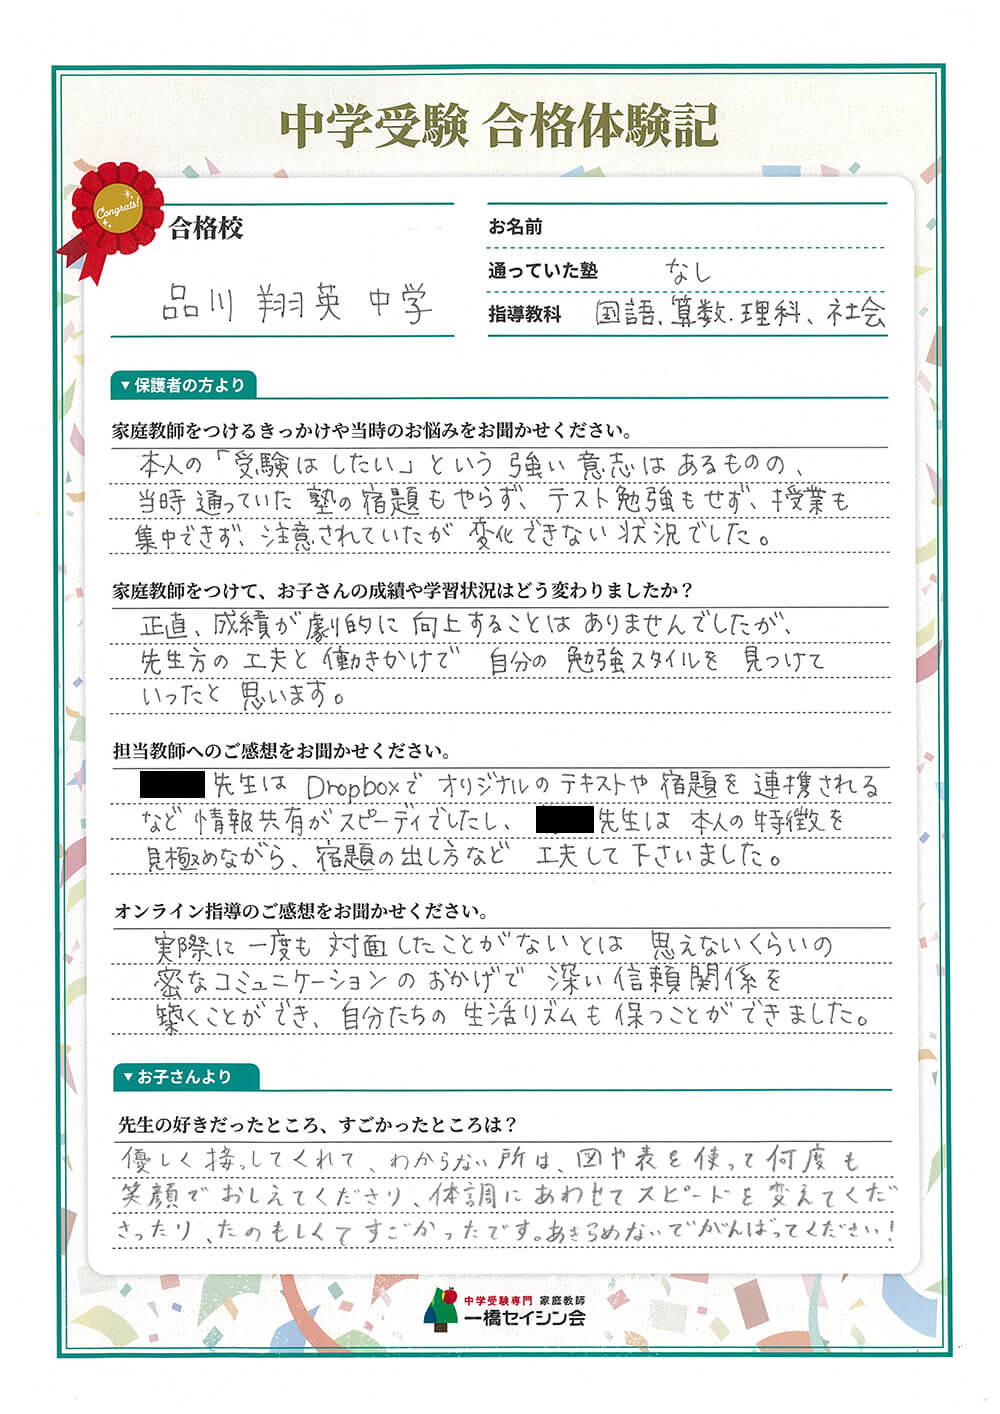 中学受験 合格体験記
Congrats!
合格校
品川 翔英 中学
お名前
通っていた塾 なし
指導教科 国語、算数、理科、社会
▼保護者の方より
家庭教師をつけるきっかけや当時のお悩みをお聞かせください。
本人の「受験はしたい」という強い意志はあるものの、
当時通っていた塾の宿題もやらず、テスト勉強もせず、授業も
集中できず、注意されていたが変化できない状況でした。
家庭教師をつけて、お子さんの成績や学習状況はどう変わりましたか？
正直、成績が劇的に向上することはありませんでしたが、
先生方の工夫と働きかけで 自分の勉強スタイルを見つけて
いったと思います。
担当教師へのご感想をお聞かせください。
先生はDropboxでオリジナルのテキストや宿題を連携される
など情報共有がスピーディでしたし、 先生は本人の特徴を
見極めながら、宿題の出し方など工夫して下さいました。
オンライン指導のご感想をお聞かせください。
実際に一度も対面したことがないとは思えないくらいの
密なコミュニケーションのおかげで深い信頼関係を
築くことができ、自分たちの生活リズムも保つことができました。
▼お子さんより
先生の好きだったところ、すごかったところは？
優しく接っしてくれて、わからない所は、図や表を使って何度も
笑顔でおしえてくださり、体調にあわせてスピードを変えてくだ
さったり、たのもしくてすごかったです。あきらめないでがんばってください！
中学受験専門 家庭教師
一橋セイシン会